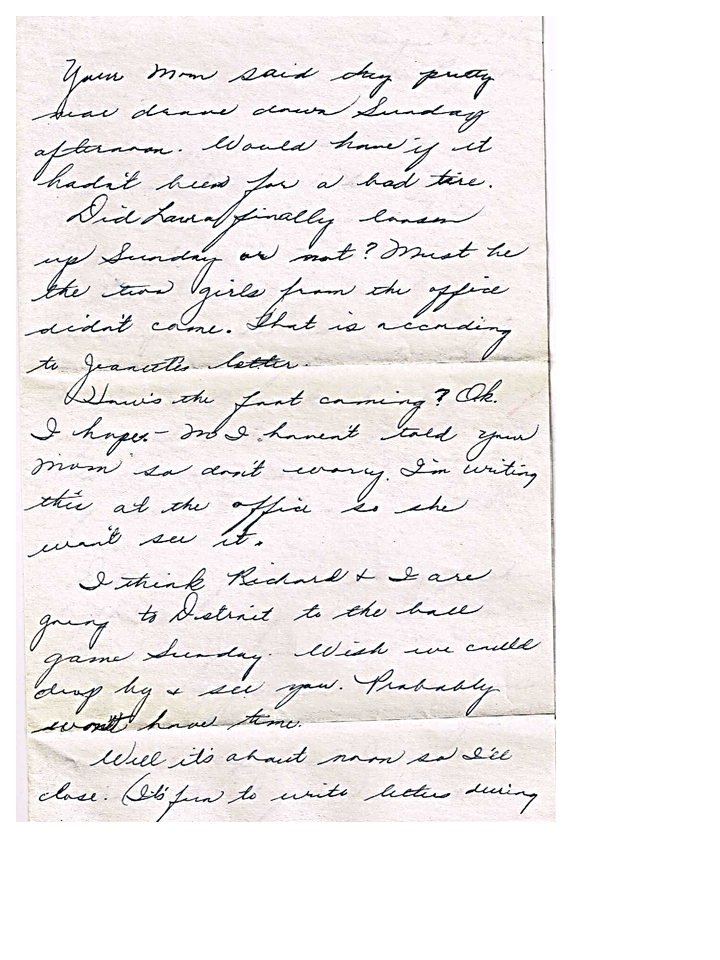 Your Mom said they pretty
near drove down Sunday
afternoon. Would have if it
hadn't been for a bad tire.
Did Laura finally loosen
up Sunday or not? Must be
the two girls from the office
didn't come. That is according
to Jeanettes letter.
How's the foot coming? Ok.
I hope. - No I haven't told your
Mom so don't worry. I'm writing
this at the office so she
won't see it.
I think Richard & I are
going to Detroit to the ball
game Sunday. Wish we could
drop by & see you. Probably
won't have time.
Well it's about noon so I'll
close. (It's fun to write letters during